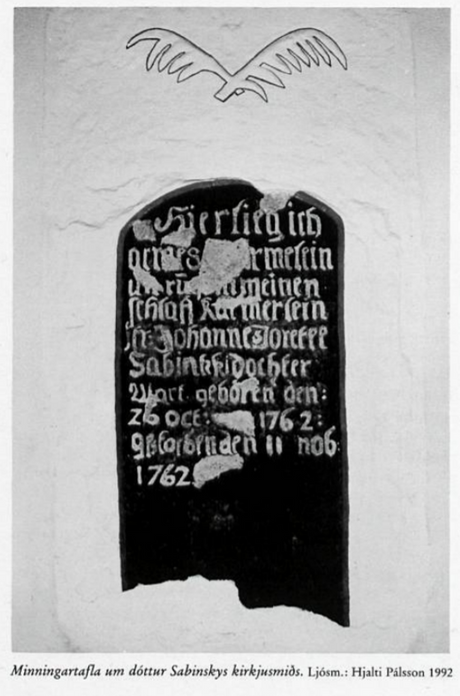 Hier lieg ich
rmelein
meinen
schlaff Kamerlein
Sabinkki dochter
Wart geboren den:
26 oct: 1762:
gestorben den 11 nob:
1762
Minningartafla um dóttur Sabinskys kirkjusmiðs. Ljósm.: Hjalti Pálsson 1992